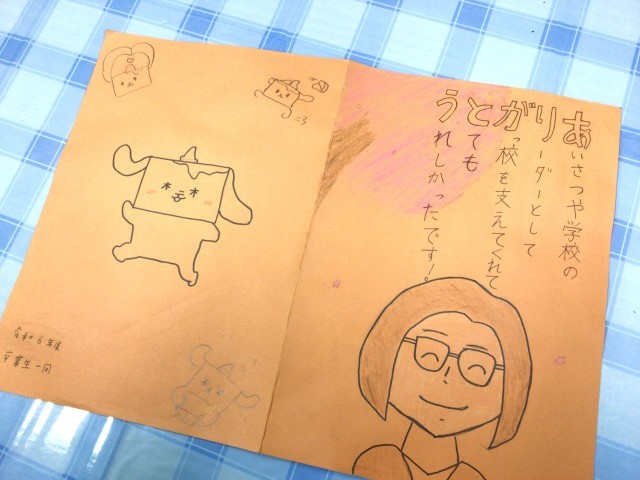 あいさつや学校の
りーダーとして
がっ校を支えてくれて
とても
うれしかったです!
令和6年度
卒業生一同